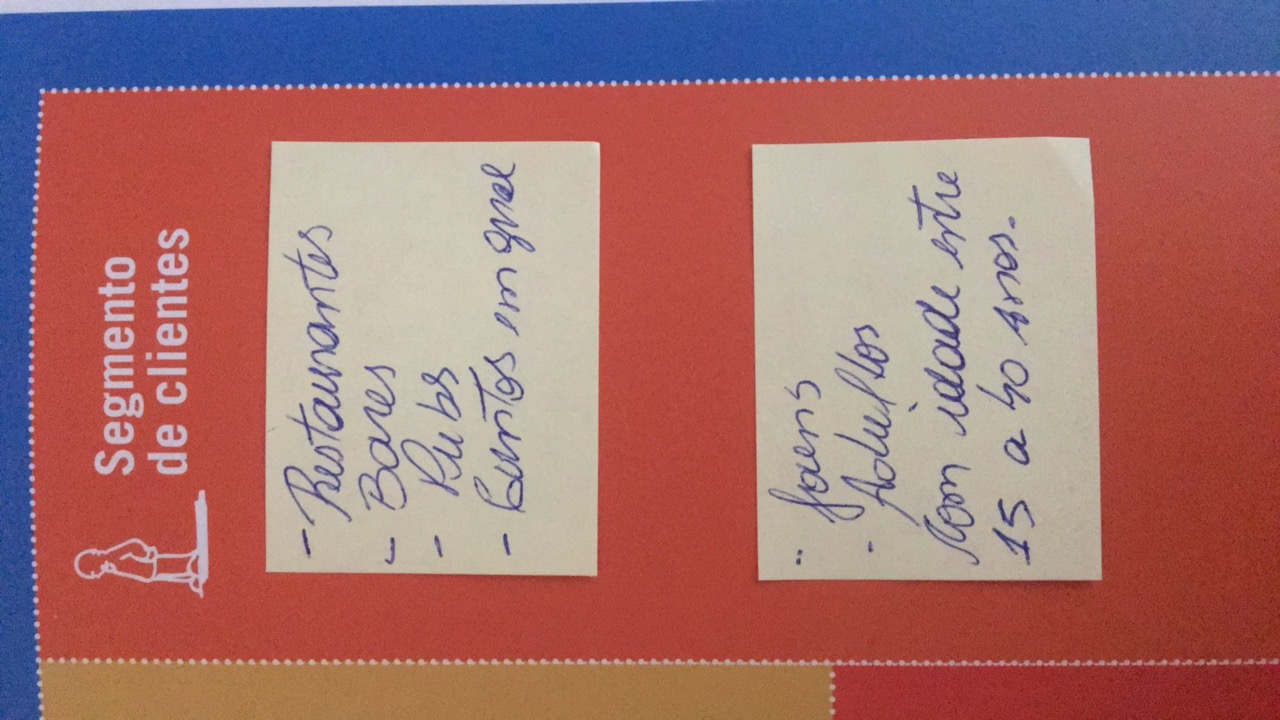 Segmento
de clientes
- Restaurantes
- Bares
- Pubs
- Eventos em geral
- Jovens
- Adultos
Com idade entre
15 a 40 anos.